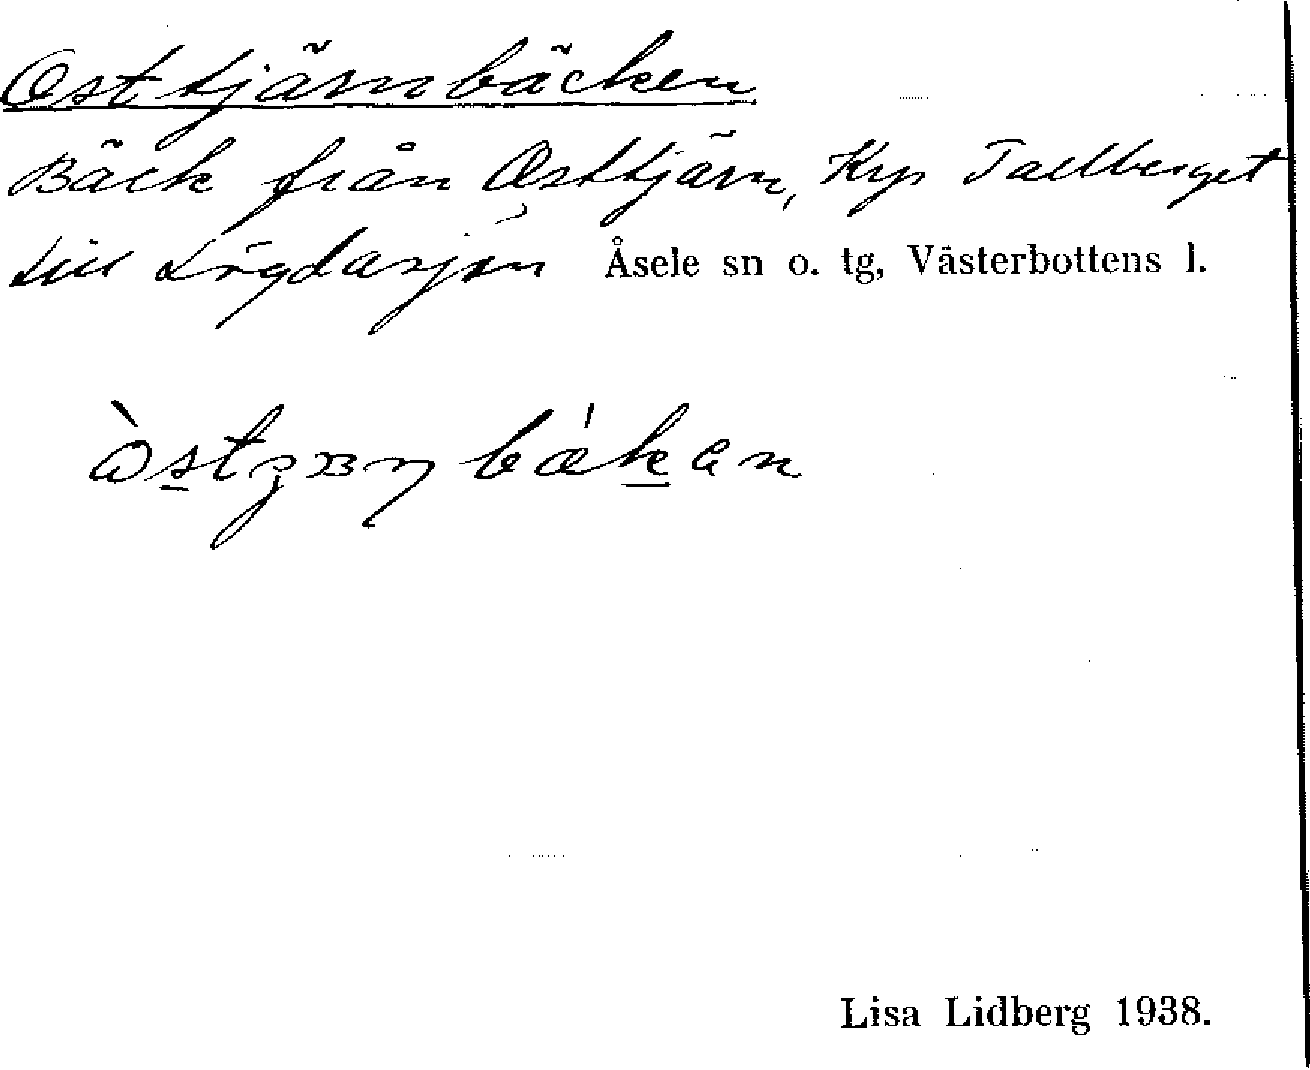 Osttjärnbäcken
Bäck från Osttjärn, Kyr Tallberget
till Lögdasjön Åsele sn o. tg, Västerbottens l.
Lisa Lidberg 1938.